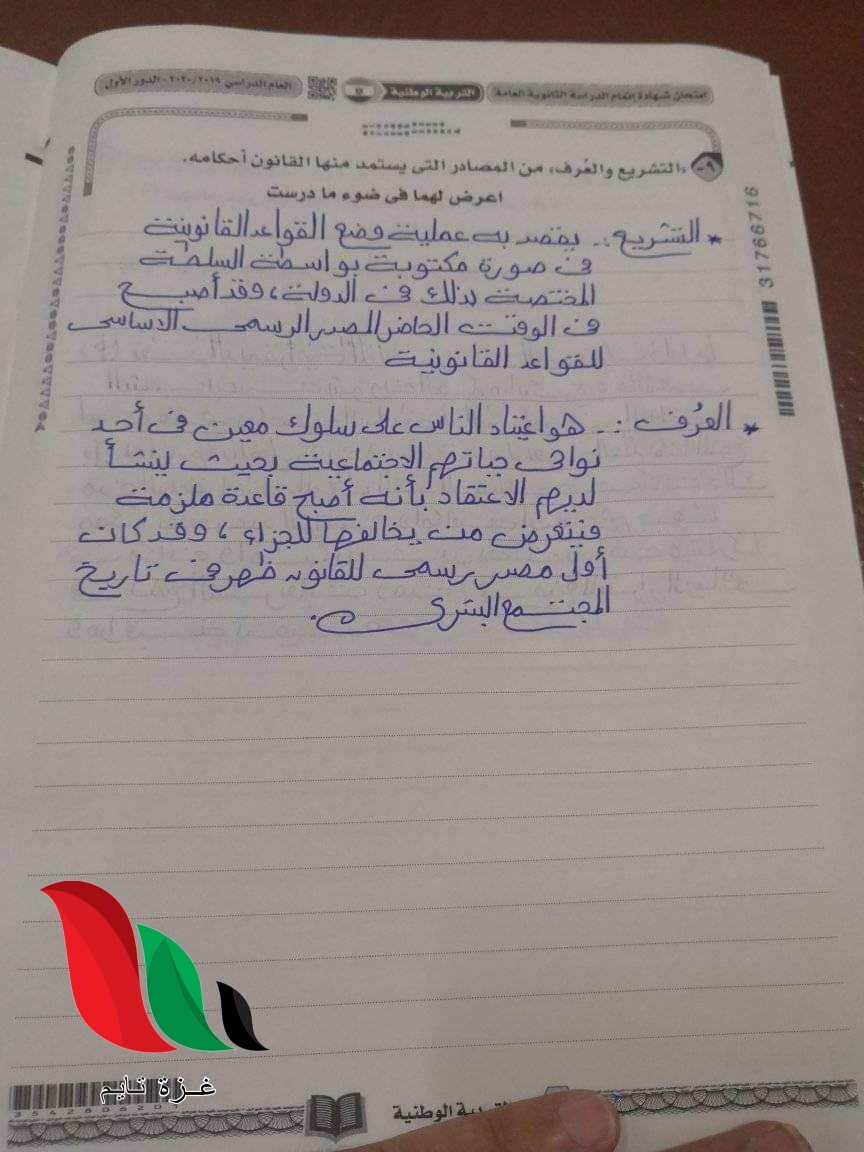 امتحان شهادة إتمام الدراسة الثانوية العامة
التربية الوطنية
العام الدراسي ٢٠٢٠/٢٠١٩ - الدور الأول
٩- «التشريع والعُرف» من المصادر التى يستمد منها القانون أحكامه.
اعرض لهما فى ضوء ما درست
31766716
* التشريع :- يقصد به عملية وضع القواعد القانونية
فى صورة مكتوبة بواسطة السلطة
المختصة بذلك فى الدولة ، وقد أصبح
فى الوقت الحاضر المصدر الرسمى الاساسى
للقواعد القانونية
* العُرف :- هو اعتياد الناس على سلوك معين فى أحد
نواحى حياتهم الاجتماعية بحيث ينشأ
لديهم الاعتقاد بأنه أصبح قاعدة ملزمة
فيتعرض من يخالفها للجزاء ، وقد كان
أول مصدر رسمى للقانون ظهر فى تاريخ
المجتمع البشرى .
غزة تايم
التربية الوطنية